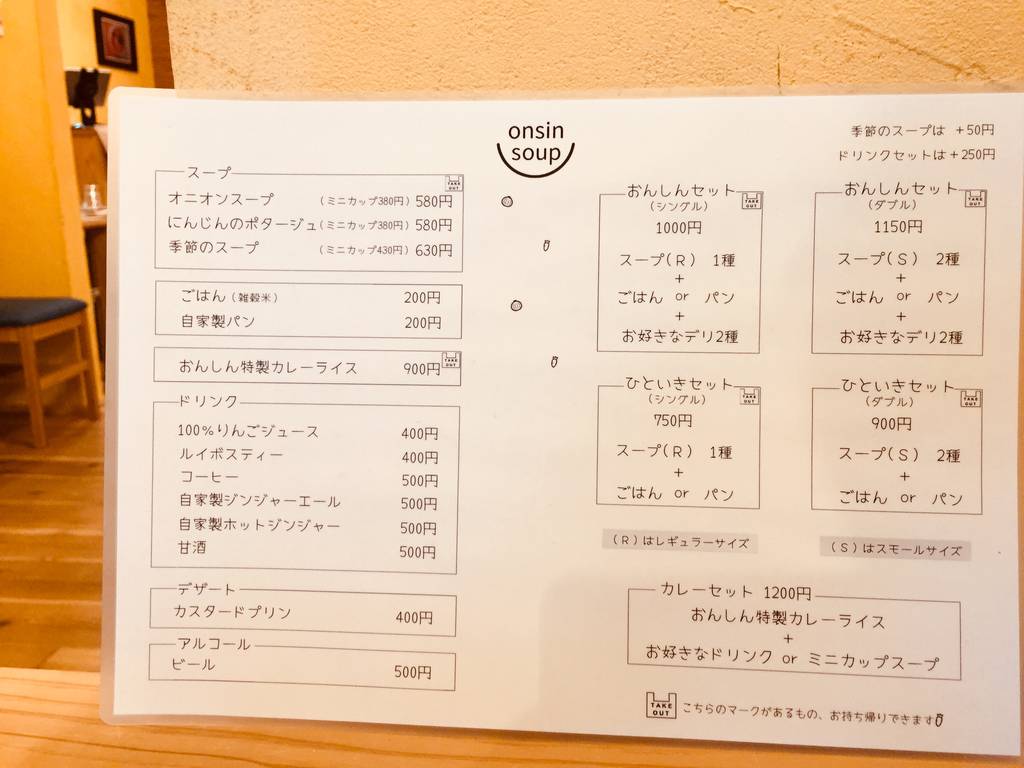 onsin
soup
季節のスープは +50円
ドリンクセットは+250円
スープ
TAKE OUT
オニオンスープ (ミニカップ380円) 580円
にんじんのポタージュ(ミニカップ380円) 580円
季節のスープ (ミニカップ430円) 630円
ごはん(雑穀米) 200円
自家製パン 200円
おんしん特製カレーライス 900円
TAKE OUT
ドリンク
100%りんごジュース 400円
ルイボスティー 400円
コーヒー 500円
自家製ジンジャーエール 500円
自家製ホットジンジャー 500円
甘酒 500円
デザート
カスタードプリン 400円
アルコール
ビール 500円
おんしんセット
(シングル)
TAKE OUT
1000円
スープ(R) 1種
+
ごはん or パン
+
お好きなデリ2種
おんしんセット
(ダブル)
TAKE OUT
1150円
スープ(S) 2種
+
ごはん or パン
+
お好きなデリ2種
ひといきセット
(シングル)
TAKE OUT
750円
スープ(R) 1種
+
ごはん or パン
ひといきセット
(ダブル)
TAKE OUT
900円
スープ(S) 2種
+
ごはん or パン
(R)はレギュラーサイズ
(S)はスモールサイズ
カレーセット 1200円
おんしん特製カレーライス
+
お好きなドリンク or ミニカップスープ
TAKE OUT
こちらのマークがあるもの、お持ち帰りできます